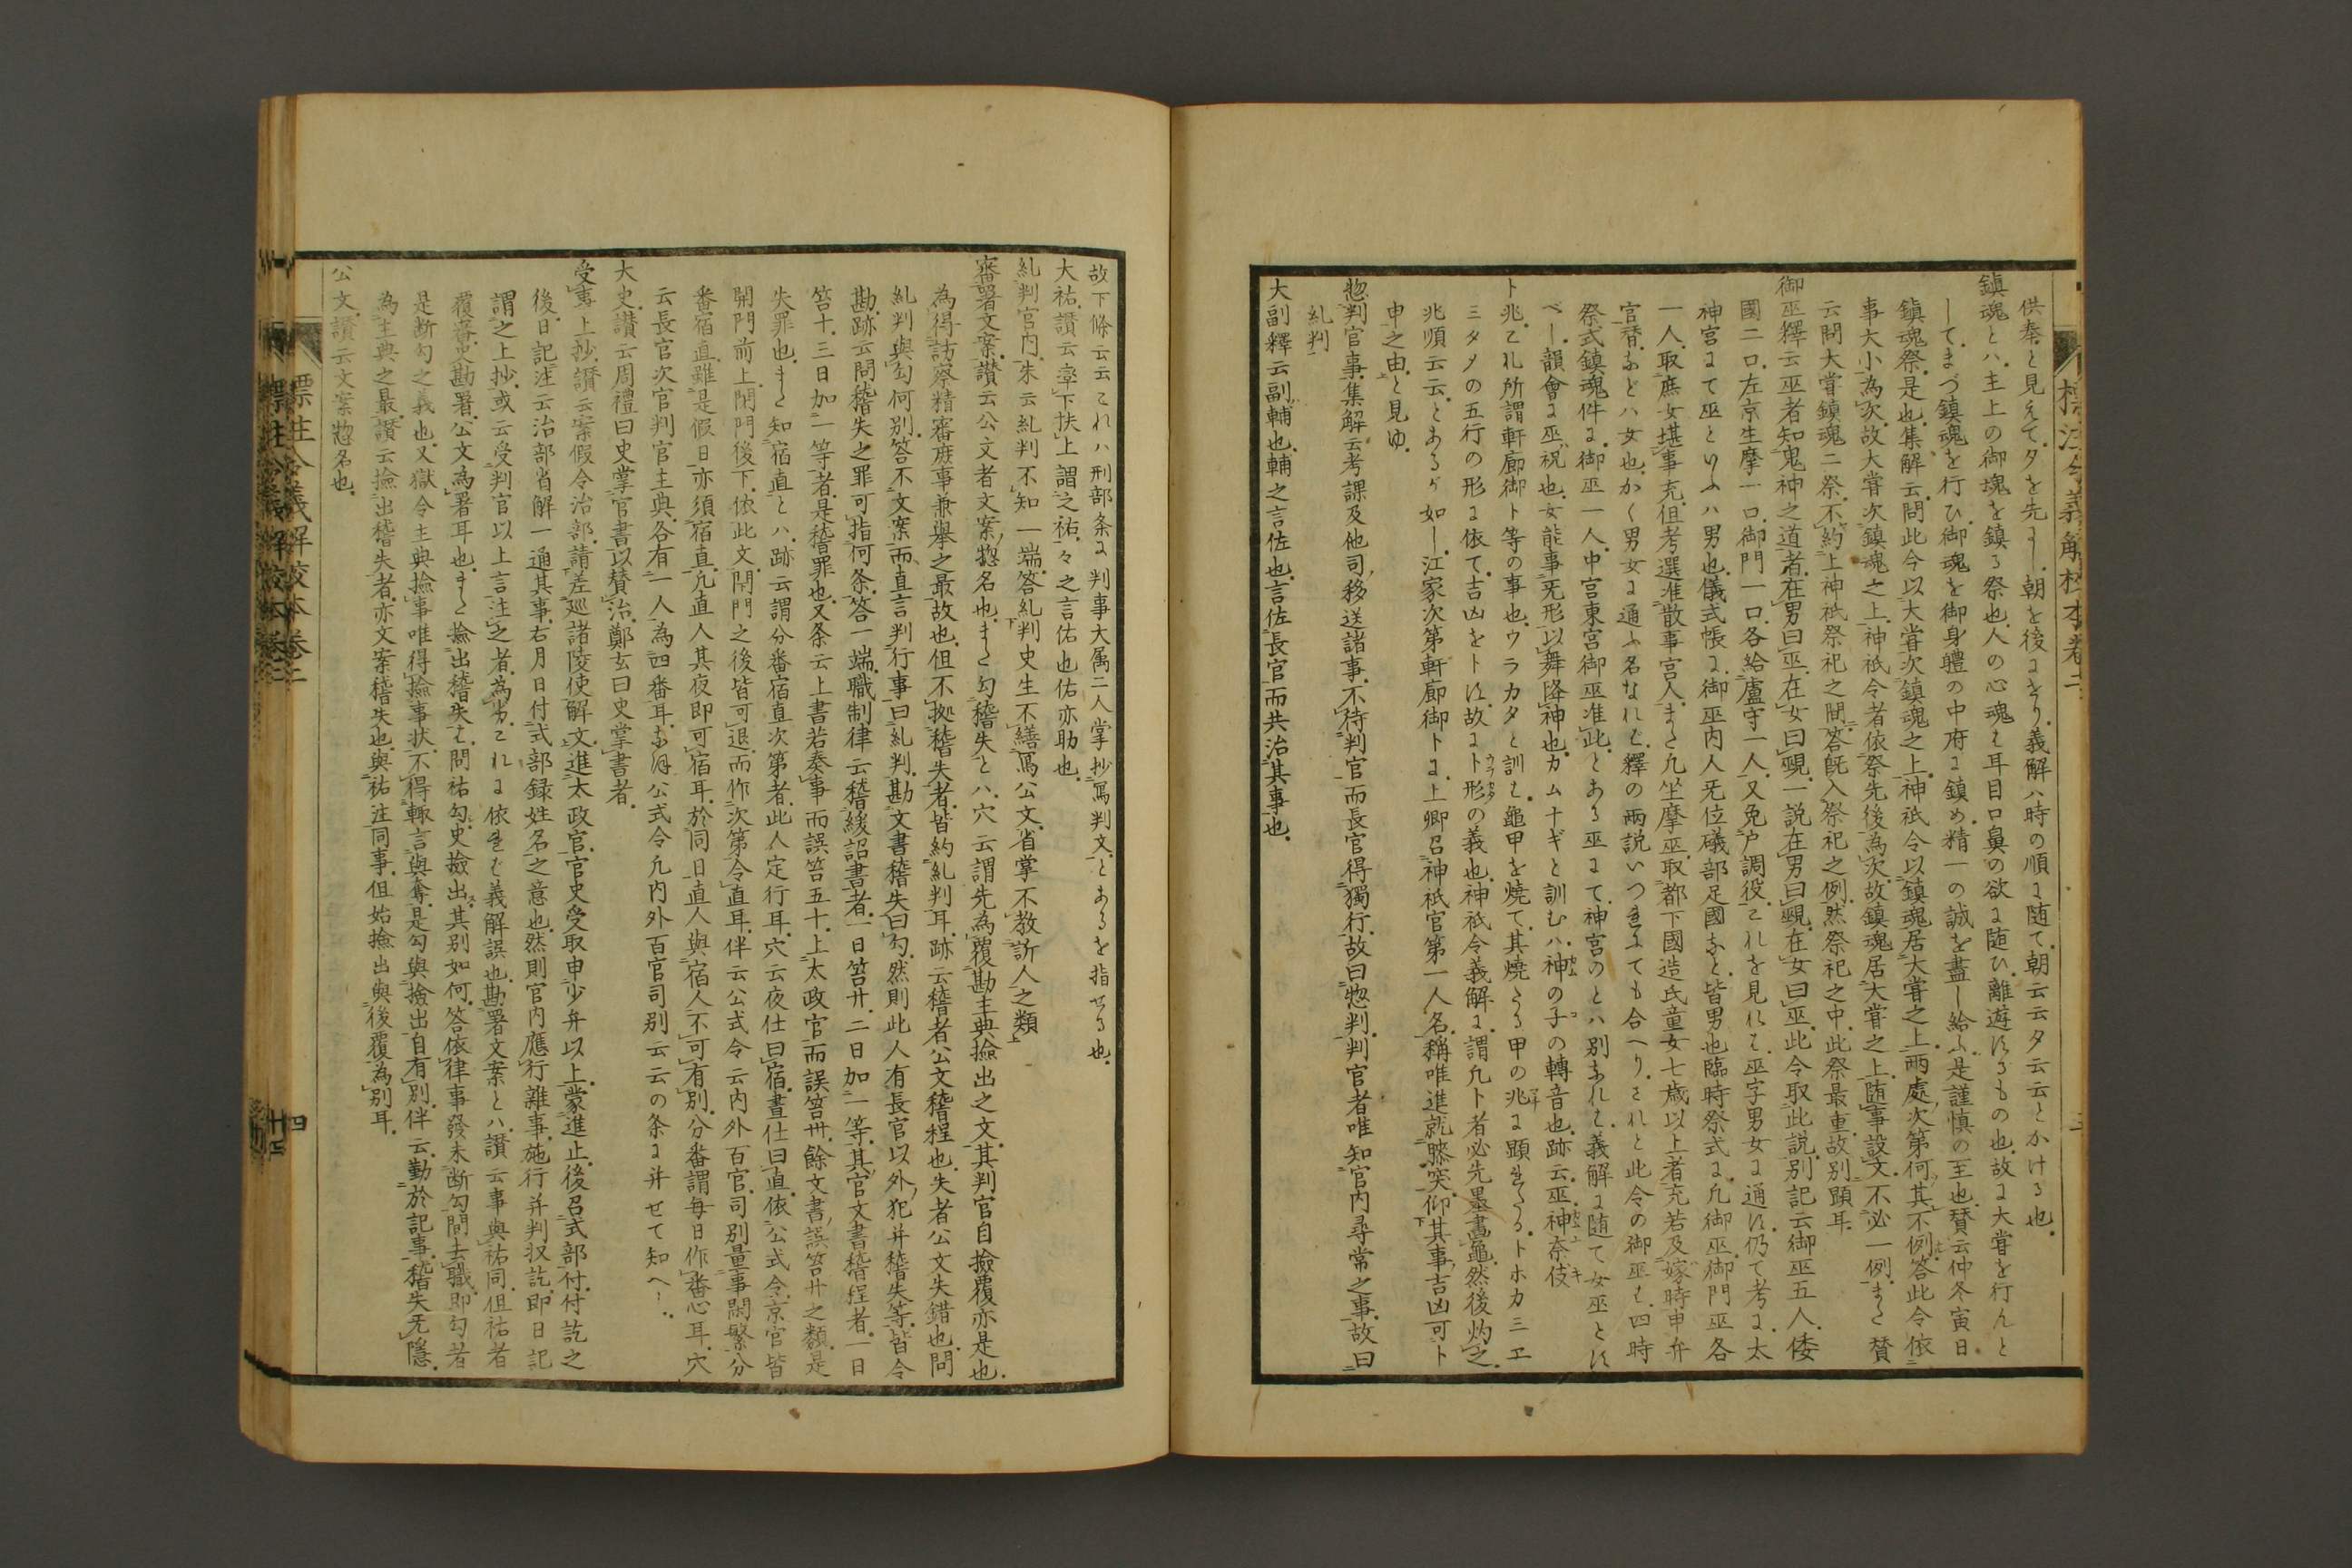 供奉と見えて夕を先にし朝を後にせり義解ハ時の順に随て朝云云夕云云とかける也
鎮魂とハ主上の御塊を鎮る祭也人の心魂も耳目口鼻の欲に随ひ離遊するもの也故に大嘗を行んと
してまづ鎮魂を行ひ御魂を御身軆の中府に鎮め精一の誠を盡し給ふ是謹慎の至也賛云仲冬寅日
鎮魂祭是也集解云問此令以大嘗次鎮魂之上神祇令以鎮魂居大嘗之上兩處次第何其不例答此令依
事大小為次故大嘗次鎮魂之上神祇令者依祭先後為次故鎮魂居大嘗之上随事設文不必一例また賛
云問大嘗鎮魂二祭不約上神祇祭祀之間答既入祭祀之例然祭祀之中此祭最重故別顕耳
御巫釋云巫者知鬼神之道者在男曰巫在女曰覡一説在男曰覡在女曰巫此令取此説別記云御巫五人倭
國二口左京生摩一口御門一口各給廬守一人又免戸調役これを見れは巫字男女に通す仍て考に太
神宮にて巫といふハ男也儀式帳に御巫内人旡位礒部足國など皆男也臨時祭式に凡御巫御門巫各
一人取庶女堪事充但考選准散事宮人また凡坐摩巫取都下國造氏童女七歳以上者充若及嫁時申弁
官替などハ女也かく男女に通ふ名なれは釋の兩説いつれにても合へりされと此令の御巫は四時
祭式鎮魂件に御巫一人中宮東宮御巫准此とある巫にて神宮のとハ別なれは義解に随て女巫とす
べし韻會に巫祝也女能事旡形以舞降神也カムナギと訓むハ神の子の轉音也跡云巫神奈伎
卜兆これ所謂軒廊御卜等の事也ウラカタと訓は龜甲を焼て其焼たる甲の兆に顕れたるトホカミエ
ミタメの五行の形に依て吉凶を卜す故に卜形の義也神祇令義解に謂凡卜者必先墨畫龜然後灼之
兆順云云とあるが如し江家次第軒廊御卜に上卿召神祇官第一人名稱唯進就膝突仰其事吉凶可卜
申之由と見ゆ
惣判官事集解云考課及他司移送諸事不待判官而長官得獨行故曰惣判判官者唯知官内尋常之事故曰
糺判
大副釋云副輔也輔之言佐也言佐長官而共治其事也
故下條云云これハ刑部条に判事大属二人掌抄寫判文とあるを指せる也
大祐讃云章下扶上謂之祐々之言佑也佑亦助也
糺判官内朱云糺判不知一端答糺判史生不繕寫公文省掌不教訴人之類
審署文案讃云公文者文案惣名也また勾稽失とハ穴云謂先為覆勘主典撿出之文其判官自撿覆亦是也
為得訪察精審庶事兼舉之最故也但不拠稽失者皆約糺判耳跡云稽者公文稽程也失者公文失錯也問
糺判與勾何別答不文案而直言判行事曰糺判勘文書稽失曰勾然則此人有長官以外犯并稽失等皆令
勘跡云問稽失之罪可指何条答一端職制律云稽緩詔書者一日笞廿二日加一等其官文書稽程者一日
笞十三日加一等者是稽罪也又条云上書若奏事而誤笞五十上太政官而誤笞卅餘文書誤笞廿之類是
失罪也また知宿直とハ跡云謂分番宿直次第者此人定行耳穴云夜仕曰宿晝仕曰直依公式令京官皆
開門前上閇門後下依此文閇門之後皆可退而作次第令直耳伴云公式令云内外百官司別量事閑繁分
番宿直雖是假日亦須宿直凡直人其夜即可宿耳於同日直人與宿人不可有別分番謂毎日作番心耳穴
云長官次官判官主典各有一人為四番耳なほ公式令凡内外百官司別云云の条に并せて知へし
大史讃云周禮曰史掌官書以賛治鄭玄曰史掌書者
受事上抄讃云案假令治部請差廵諸陵使解文進太政官官史受取申少弁以上蒙進止後召式部付付訖之
後日記注云治部省解一通其事右月日付式部録姓名之意也然則官内應行雜事施行并判収訖即日記
謂之上抄或云受判官以上言注之者為劣これに依れば義解誤也勘署文案とハ讃云事與祐同但祐者
覆審史勘署公文為署耳也また撿出稽失は問祐勾史撿出其別如何答依律事發未断勾問去職即勾者
是断勾之義也又獄令主典撿事唯得撿事状不得輙言與奪是勾與撿出自有別伴云勤於記事稽失旡隠
為主典之最讃云撿出稽失者亦文案稽失也與祐注同事但始撿出與後覆為別耳
公文讃云文案惣名也
標注令義解校本卷二
四